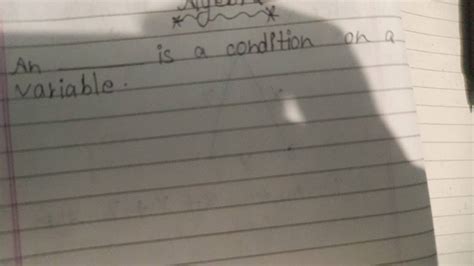 Algebra
An ______ is a condition on a
variable.